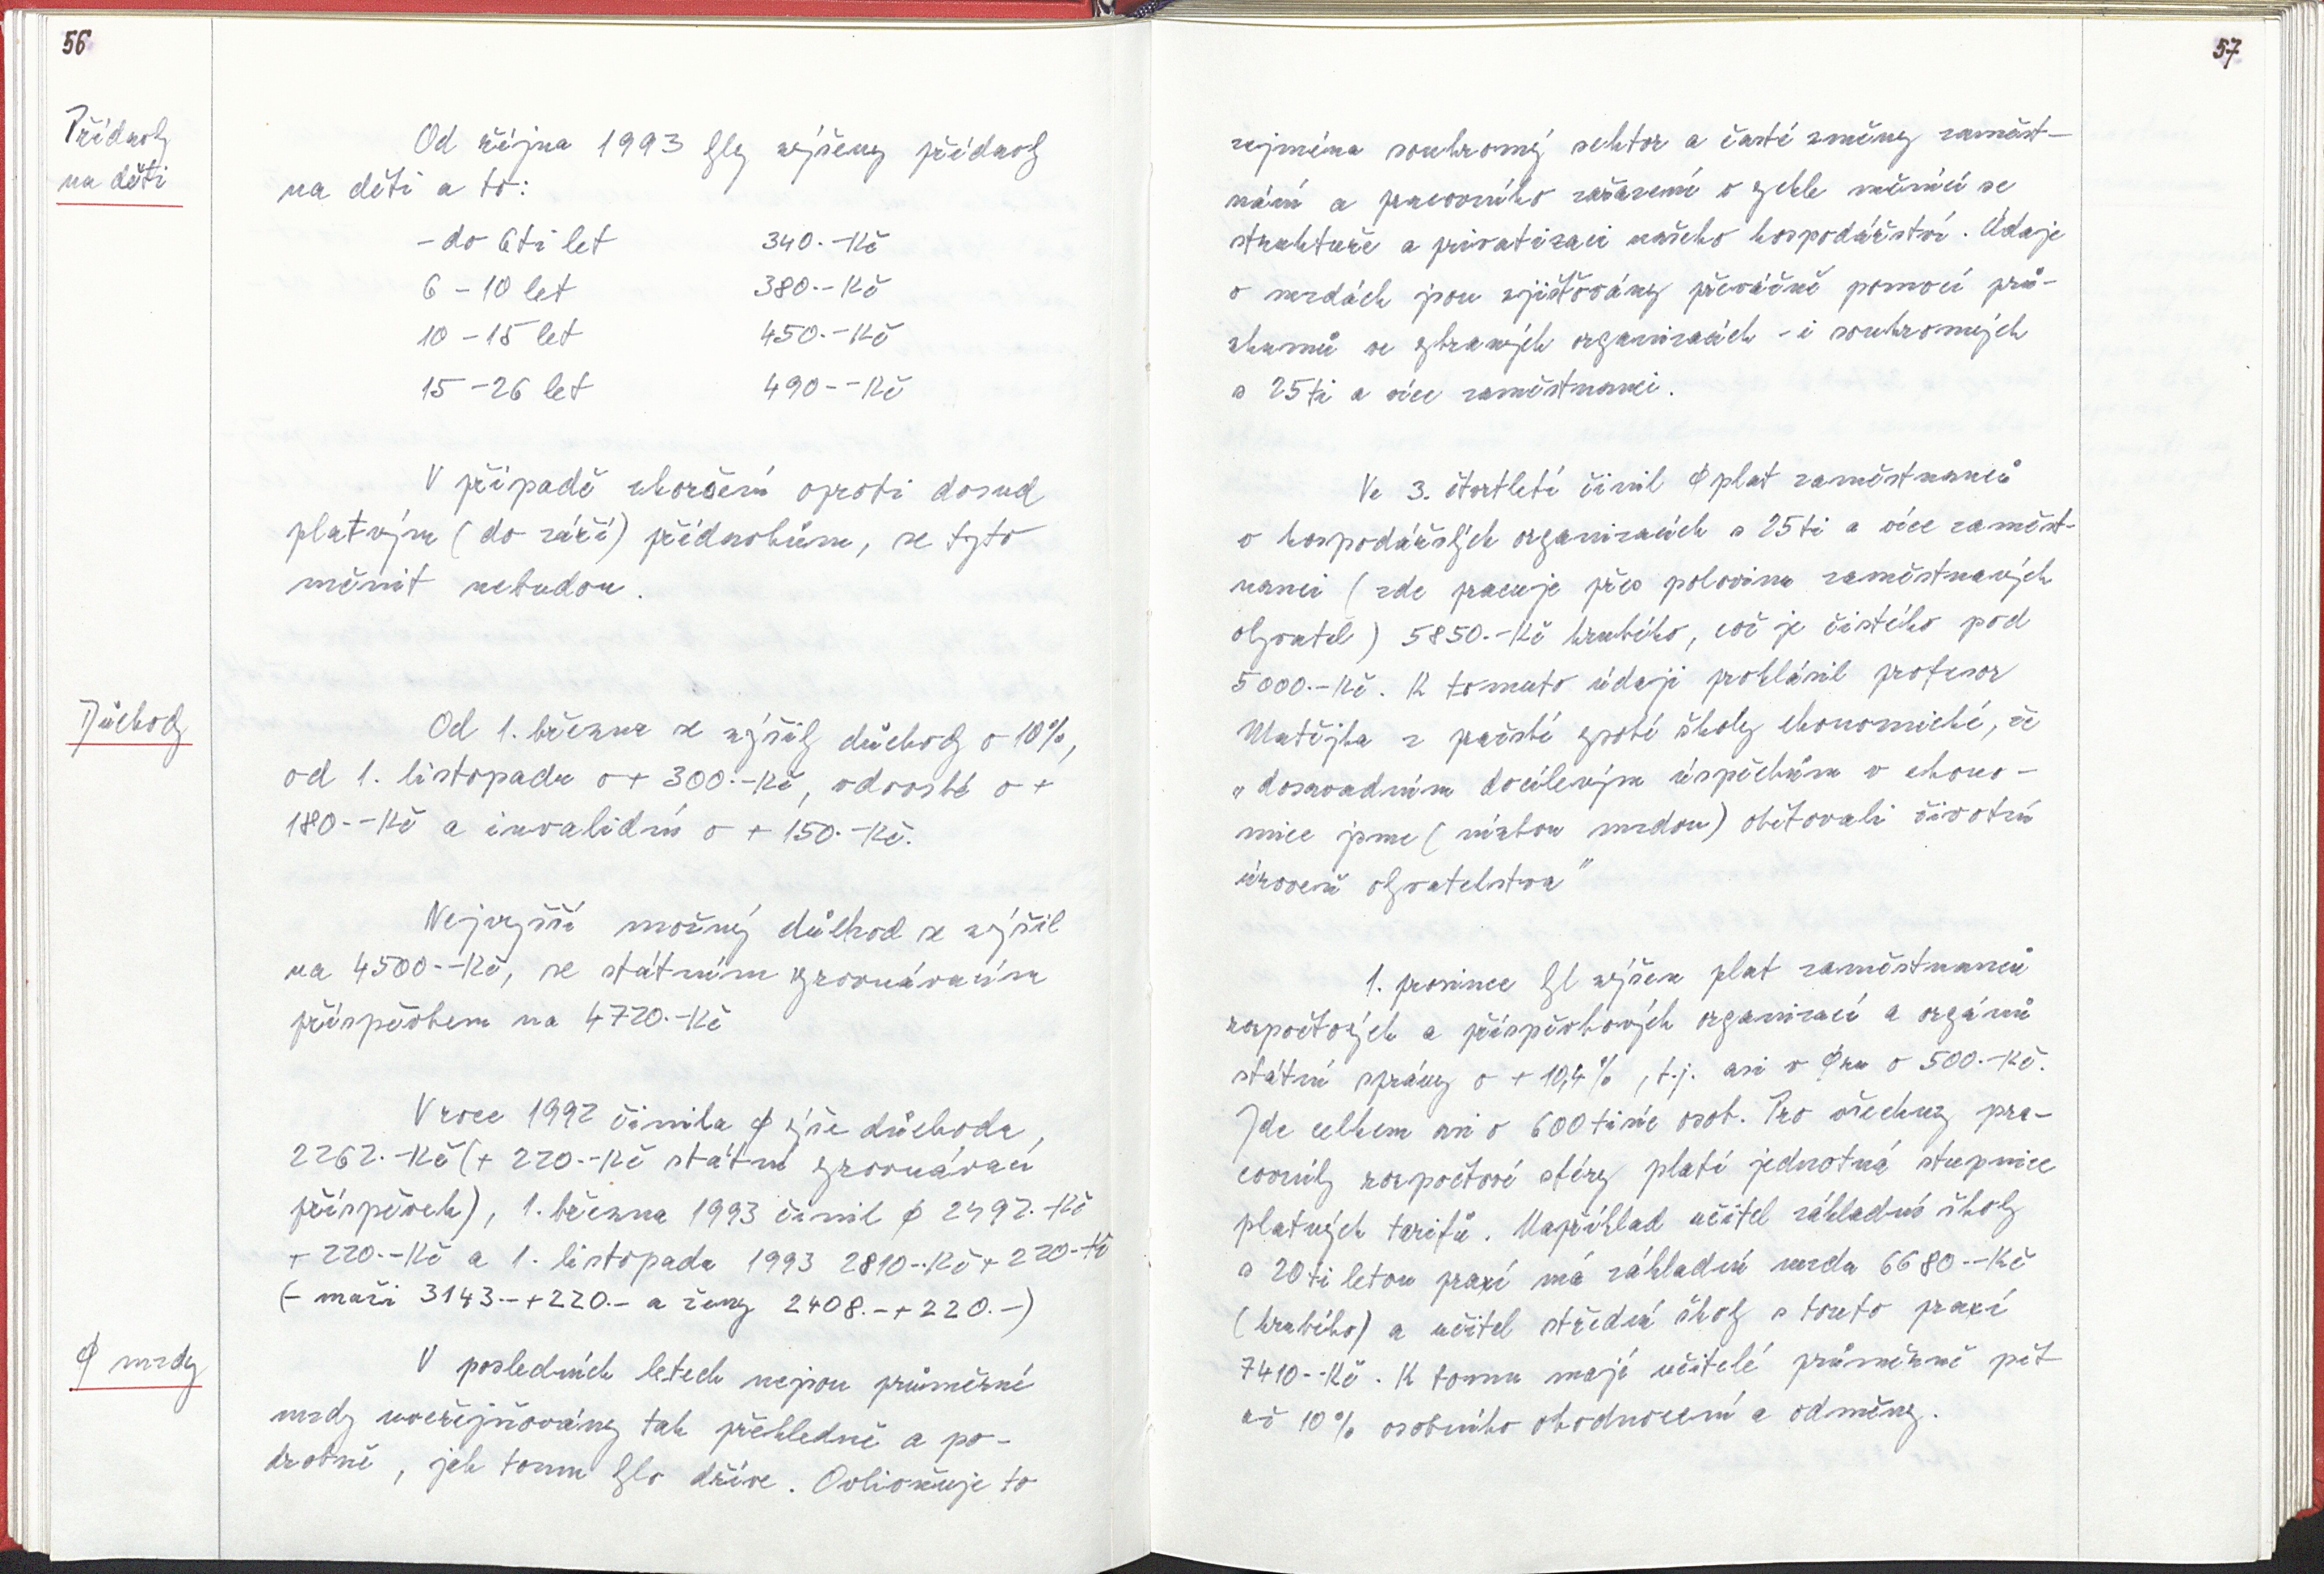 56
Přídavky
na děti
Od října 1993 byly zvýšeny přídavky
na děti a to:
- do 6ti let 340.-Kč
6 - 10 let 380.-Kč
10 - 15 let 450.-Kč
15 - 26 let 490.-Kč
V případě zhoršení oproti dosud
platným (do září) přídavkům, se tyto
měnit nebudou.
Důchody
Od 1. března se zvýšily důchody o 10%,
od 1. listopadu o + 300.-Kč, vdovské o +
180.-Kč a invalidní o + 150.-Kč.
Nejvyšší možný důchod se zvýšil
na 4500.-Kč, se státním vyrovnávacím
příspěvkem na 4720.-Kč
V roce 1992 činila ø výše důchodu,
2262.-Kč (+ 220.-Kč státní vyrovnávací
příspěvek), 1. března 1993 činil ø 2492.-Kč
+ 220.-Kč a 1. listopadu 1993 2810.-Kč + 220.-Kč
(- muži 3143.- + 220.- a ženy 2408.- + 220.-)
ø mzdy
V posledních letech nejsou průměrné
mzdy uveřejňovány tak přehledně a po-
drobně, jak tomu bylo dříve. Ovlivňuje to
57
zejména soukromý sektor a časté změny zaměst-
nání a pracovního zařazení v rychle měnící se
struktuře a privatizaci našeho hospodářství. Údaje
o mzdách jsou zjišťovány převážně pomocí prů-
zkumů ve vybraných organizacích - i soukromých
s 25ti a více zaměstnanci.
Ve 3. čtvrtletí činil ø plat zaměstnanců
v hospodářských organizacích s 25ti a více zaměst-
nanci (zde pracuje přes polovinu zaměstnaných
obyvatel) 5850.-Kč hrubého, což je čistého pod
5000.-Kč. K tomuto údaji prohlásil profesor
Matějka z pražské vysoké školy ekonomické, že
„dosavadním docíleným úspěchům v ekono-
mice jsme (nízkou mzdou) obětovali životní
úroveň obyvatelstva"
1. prosince byl zvýšen plat zaměstnanců
rozpočtových a příspěvkových organizací a orgánů
státní správy o + 10,4%, t.j. asi v øru o 500.-Kč.
Jde celkem asi o 600 tisíc osob. Pro všechny pra-
covníky rozpočtové sféry platí jednotná stupnice
platných tarifů. Například učitel základní školy
s 20ti letou praxí má základní mzdu 6680.-Kč
(hrubého) a učitel střední školy s touto praxí
7410.-Kč. K tomu mají učitelé průměrně pět
až 10% osobního ohodnocení a odměny.